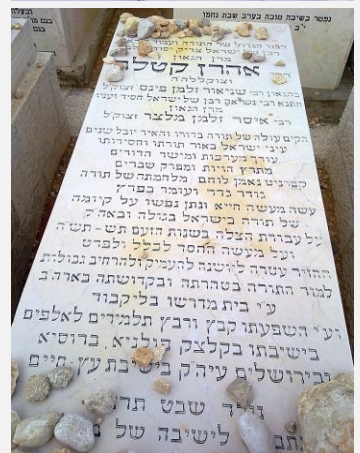 נפטר בשיבה טובה בערב שבת נחמו
רבנו הגדול שר התורה ועמוד
מרן הגאון
אהרן קטלר
זצוקללה"ה
בהגאון רבי שניאור זלמן פינס זצוק"ל
חתנא דבי נשיאה רבן של ישראל חסיד ועניו
מרן הגאון
רבי איסר זלמן מלצר זצוק"ל
הקים עולה של תורה בדורו והאיר יובל שנים
עיני ישראל באור תורתו וחסידותו
עורך מערכות ומישר הדורים
מתרץ הויות ומפרק שברים
קברניט נאמן לוחם מלחמתה של תורה
גודר גדר ועומד בפרץ
עשה מעשה חייא ונתן נפשו על קיומה
של תורה בישראל בגולה ובאה"ק
על עבודת הצלה בשנות הזעם תש - תש"ה
ועל מעשה החסד לכלל ולפרט
החזיר עטרה ליושנה להעמיק ולהרחיב גבולות
למוד התורה בטהרתה ובקדושתה בארה"ב
ע"י בית מדרשו בליקבוד
וע"י השפעתו קבץ ורבץ תלמידים לאלפים
בישיבתו בקלצק פולניא ברוסיא
ובירושלים עיה"ק בישיבת עץ-חיים
שבט
לישיבה של